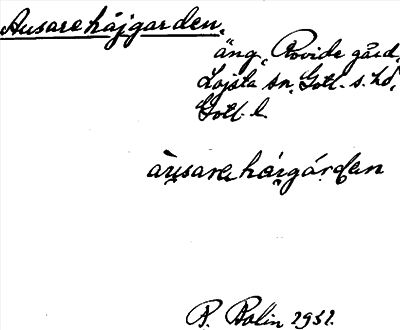 Ausarehåjgarden,
äng, Rovide gård,
Lojsta sn, Gotl. s. hd,
Gotl. l.
àu̯sarehái̯gárdęn
P. Bolin 1931.